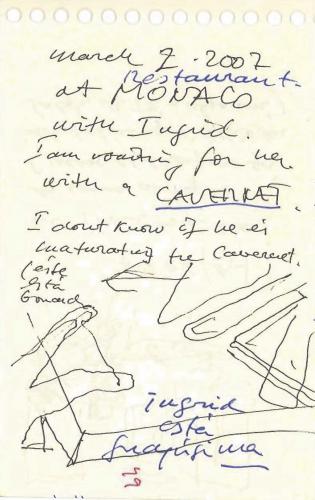 march 7. 2002
Restaurant.
at MÓNACO
with Ingrid.
I am waiting for her
with a CAVERNET.
I don't know if he is
maturating the Cavernet.
(éste
está
tomando
Ingrid
está
guapísima